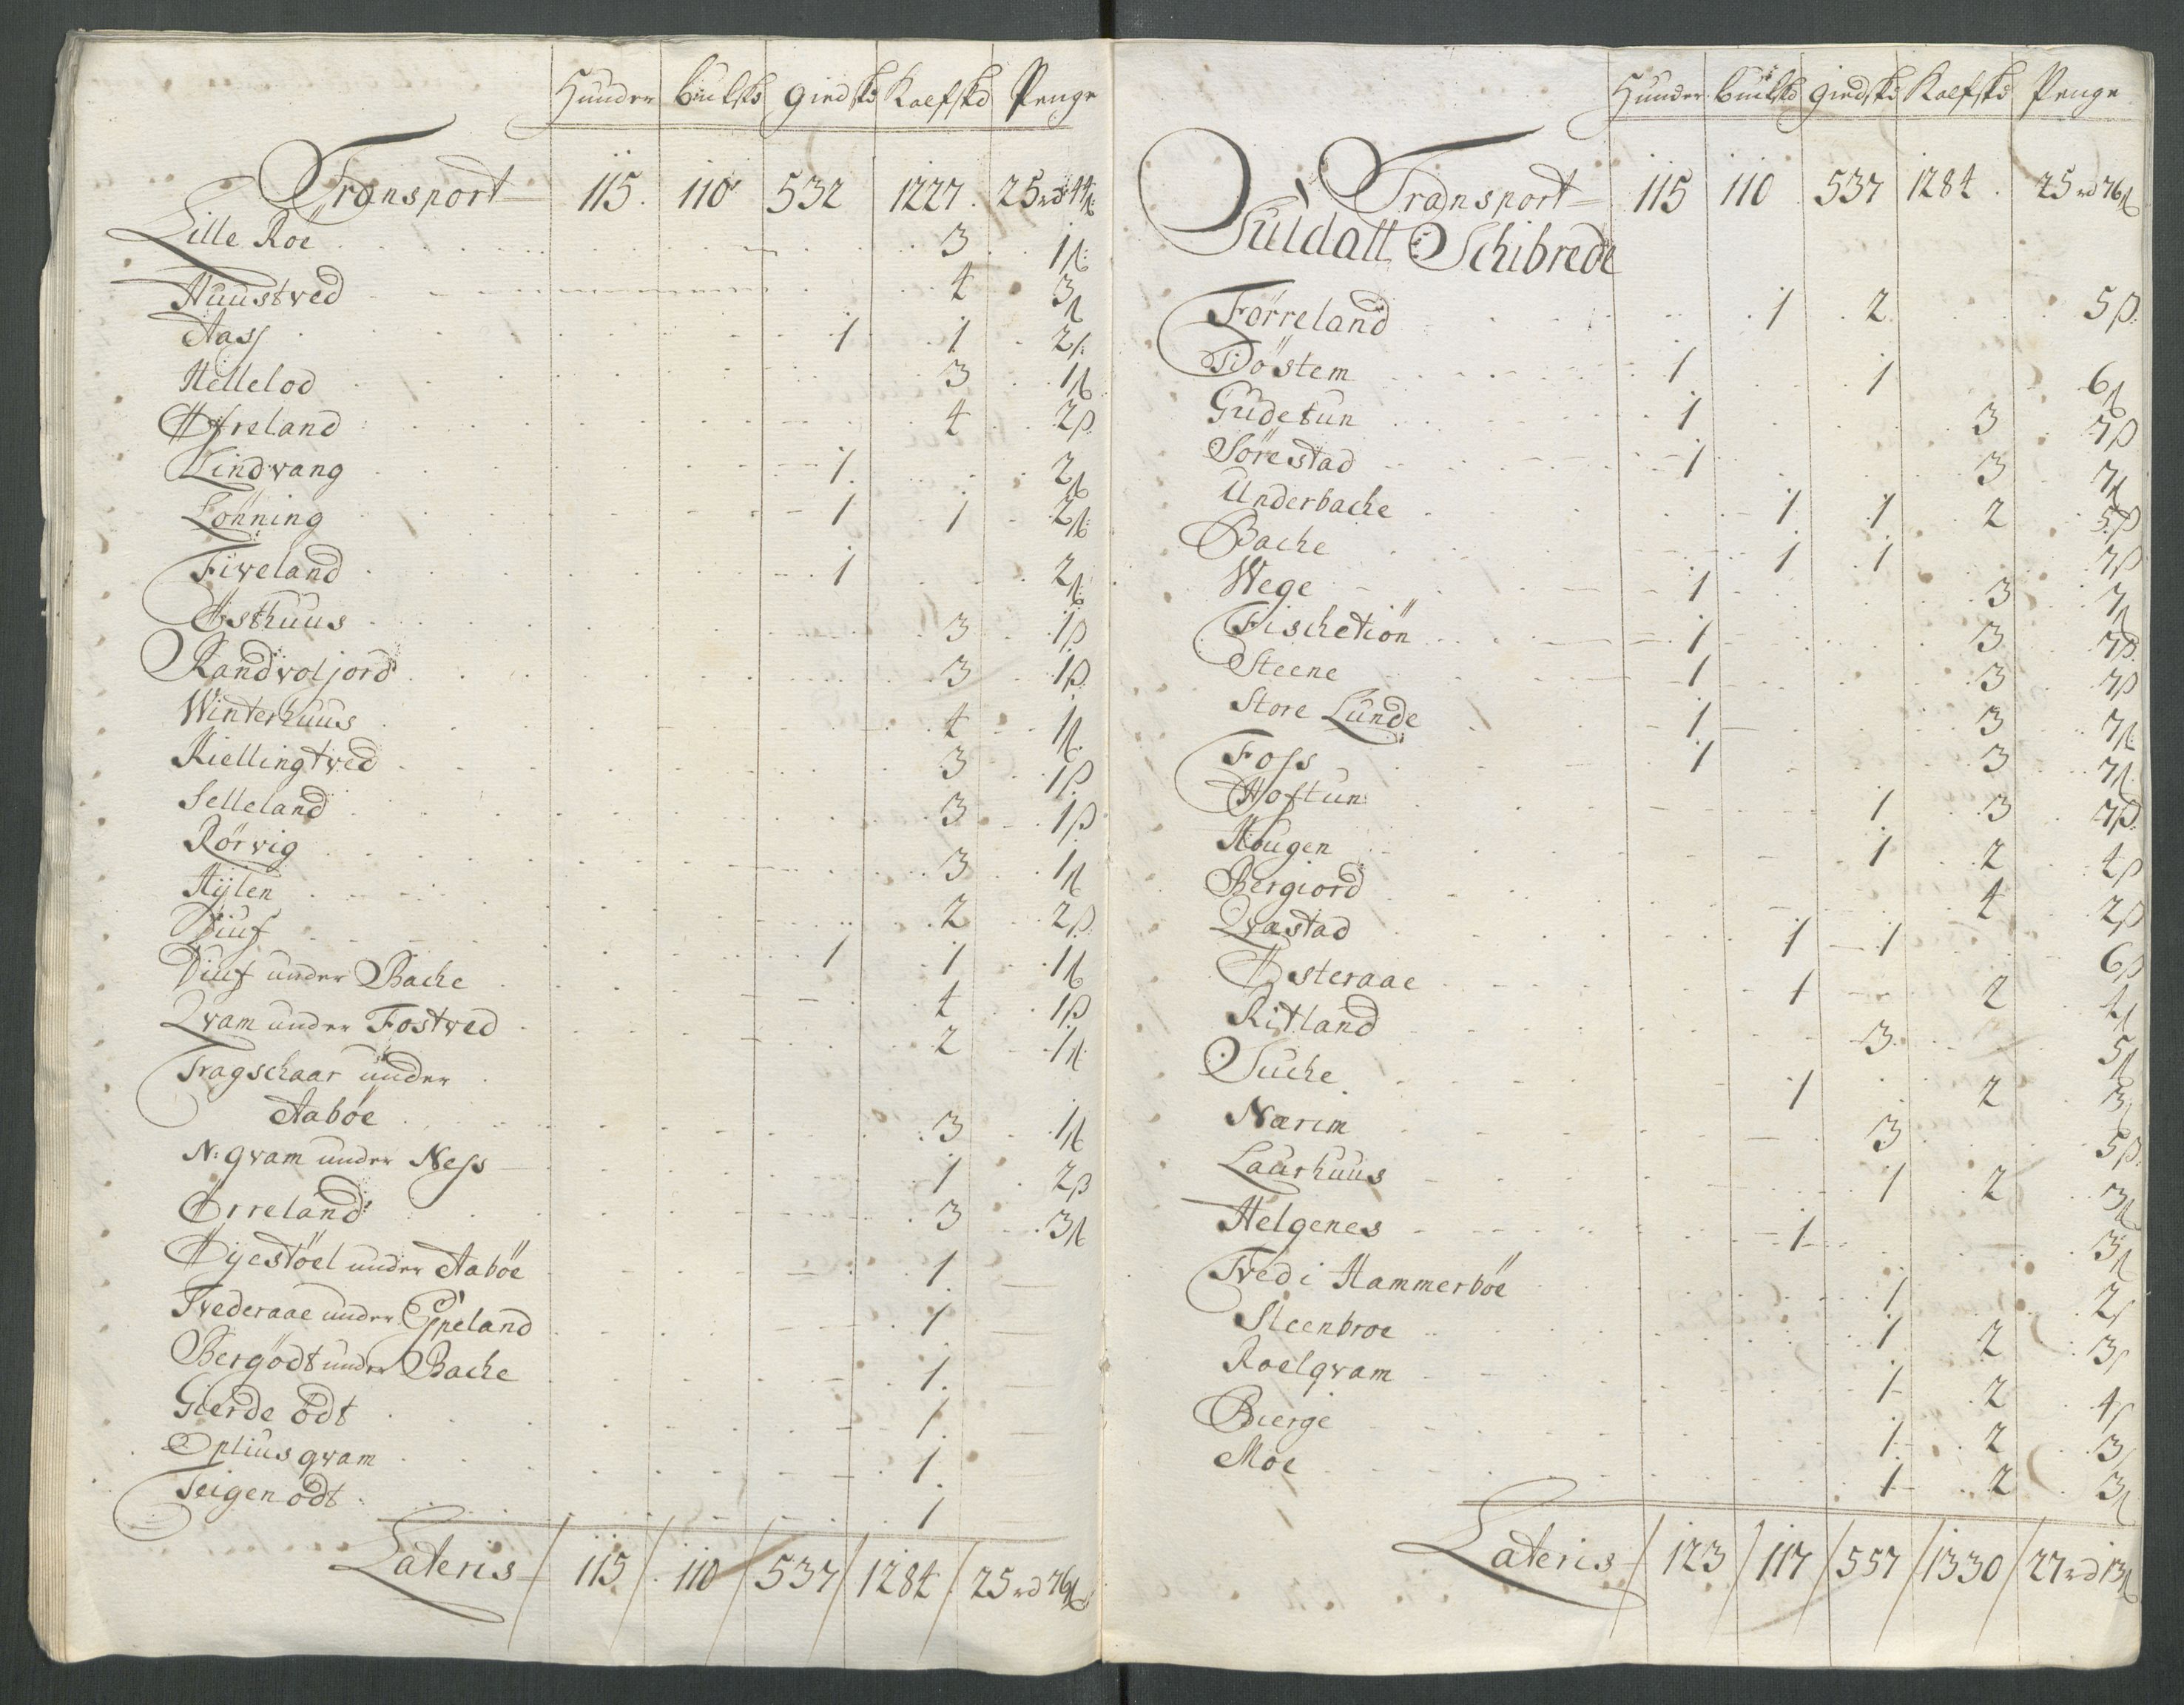 Hunder Buckskd giedskd Kalfskd Penge
Transport 115 110 532 1227 25rd 44ß
Lille Röe 3 1ß
Huustved 4 3ß
Aass 1 1 2ß
Hellelod 3 1ß
Øfreland 4 2ß
Lindvang 1 2ß
Lönning 1 1 2ß
Fiveland 1 2ß
Østhuus 3 1ß
Randvoljord 3 1ß
Winterhuus 4 1ß
Kiellingtved 3 1ß
Selleland 3 1ß
Rörvig 3 1ß
Hÿlen 2 2ß
Diuf 1 1 1ß
Diuf under Bache 4 1ß
Qvam under Fostved 2 1ß
Tragschaar under
Aaböe 3 1ß
N: qvam under Ness 1 2ß
Ørreland 3 3ß
Øÿestöel under Aaböe 1
Tvederaae under Epeland 1
Bergödt under Bache 1
Gierde ödt 1
Opliusqvam 1
Teigen ödt 1
Lateris 115 110 537 1284 25rd 76ß
Hunder Buckskd giedskd Kalfskd Penge
Transport 115 110 537 1284 25rd 76ß
Suldall Schibrede
Förreland 1 2 5ß
Tiöstem 1 1 6ß
Gudetun 1 3 7ß
Sörestad 1 3 7ß
Underbache 1 1 2 5ß
Bache 1 1 7ß
Wege 1 3 7ß
Fischetiön 1 3 7ß
Steene 1 3 7ß
Store Lunde 1 3 7ß
Foss 1 3 7ß
Hoftun 1 3 7ß
Hougen 1 2 4ß
Bergiord 4 2ß
Qvæstad 1 1 6ß
Østeraae 1 2 4ß
Ritland 3 5ß
Suche 1 2 3ß
Nærim 3 5ß
Laurhuus 1 2 3ß
Helgenes 1 3ß
Tved i Hammerböe 1 2ß
Steenbroe 1 2 3ß
Roelqvam 1 2 4ß
Bierge 1 2 3ß
Moe 1 2 3ß
Lateris 123 117 557 1330 27rd 13ß